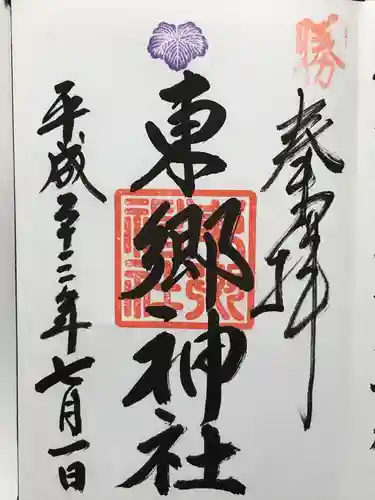 勝
奉拝
東郷神社
東郷神社
平成二十二年七月一日